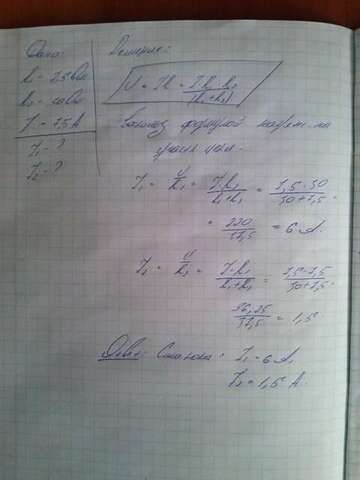 Дано:
R₁ = 7,5 Ом
R₂ = 30 Ом
I = 7,5 А
I₁ - ?
I₂ - ?
Решение:
U = IR = I R₁ R₂ / (R₁+R₂)
формулой
I₁ = U / R₁ = I·R₂ / R₁+R₂ = 7,5·30 / 30+7,5 =
= 220 / 37,5 = 6 А.
I₂ = U / R₂ = I·R₁ / R₁+R₂ = 7,5·7,5 / 30+7,5
56,25 / 37,5 = 1,5
Ответ: I₁ = 6 А,
I₂ = 1,5 А.